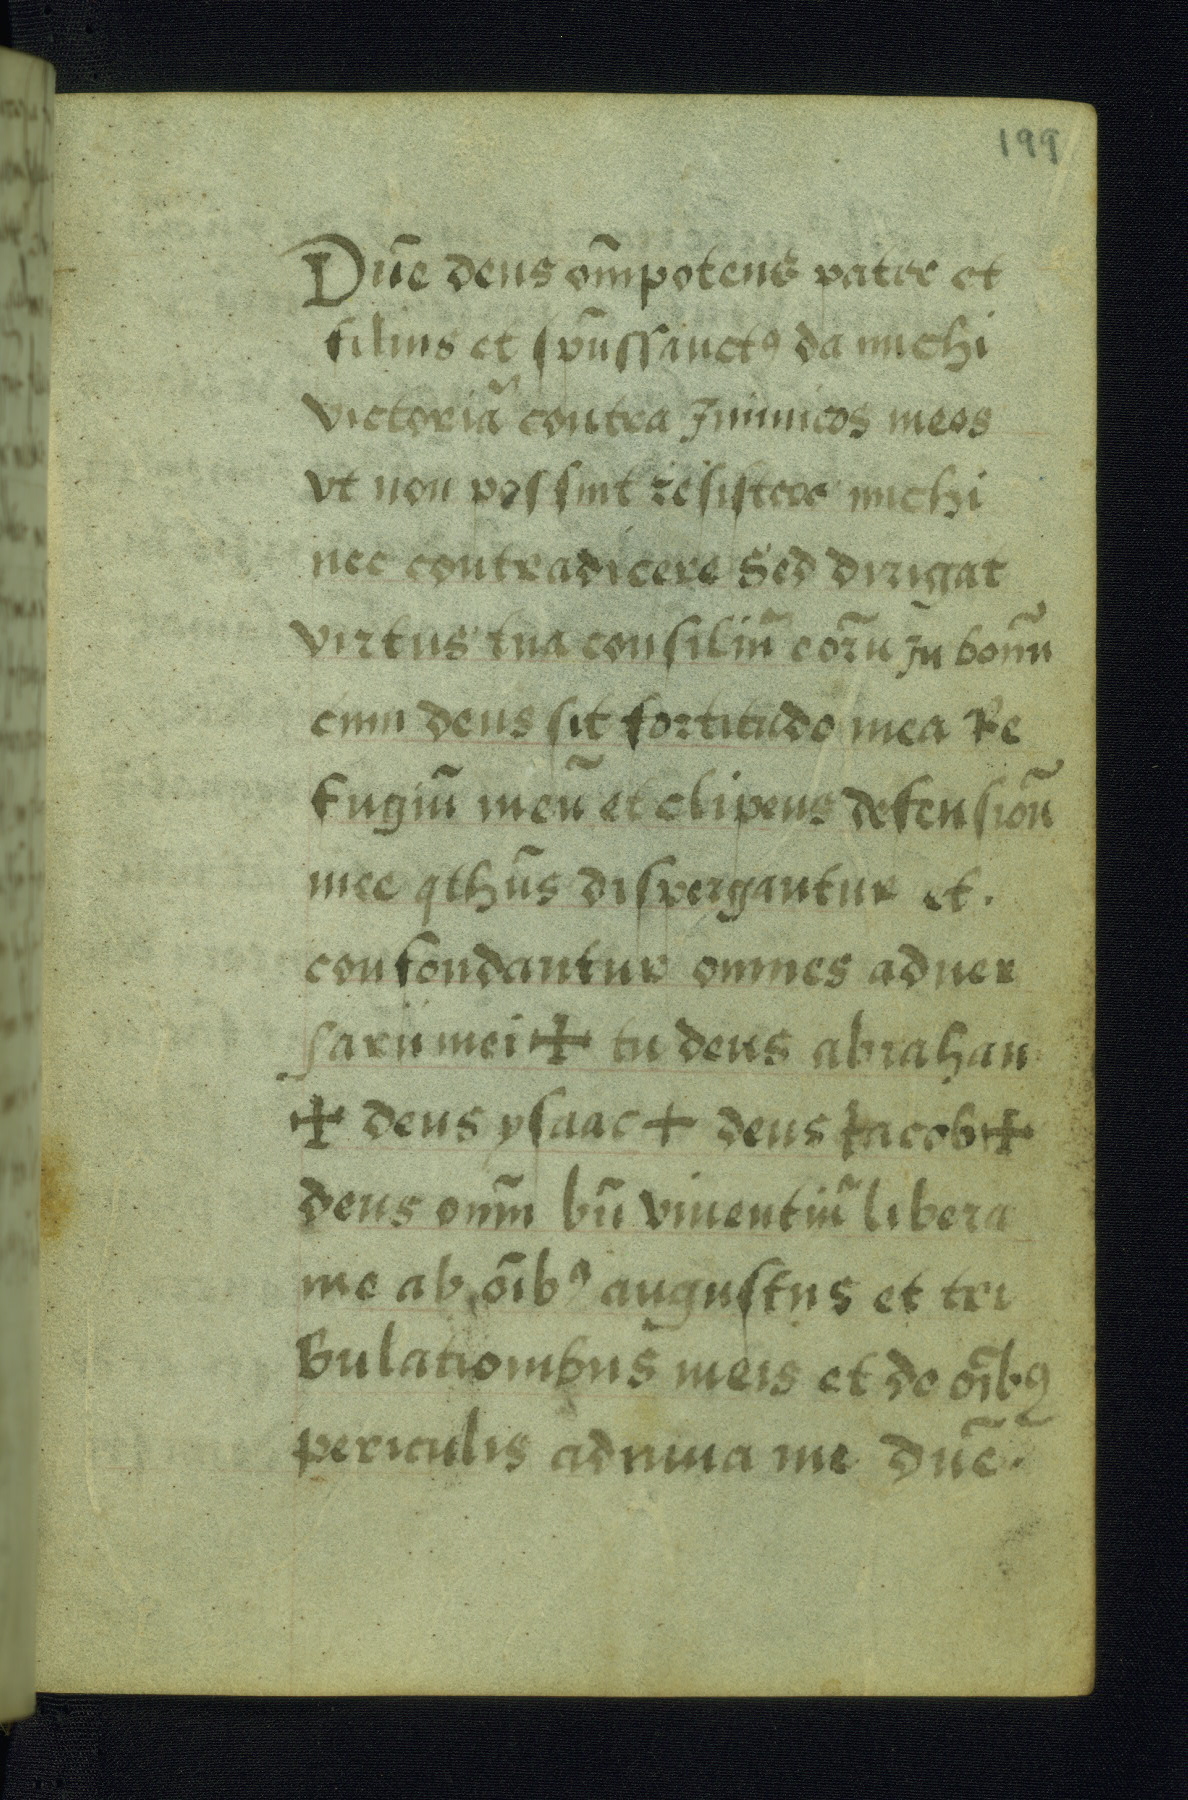 199
Dn̄e deus om̄potens pater et
filius et sp̄ussanctꝯ da michi
victoriā contra Inimicos meos
vt non possint resistere michi
nec contradicere Sed dirigat
virtus tua consiliū eōru In bonū
cum deus sit fortitudo mea Re
fugiū meū et clipeus defensiōn
mee qthūs dispergantur et.
confondantur omnes aduer
sarii mei ✠ tu deus abrahan
✠ deus ysaac + deus Iacob ✠
deus omm̄ bn̄ viuentiū libera
me ab oībꝯ angustiis et tri
bulationibus meis et de oībꝯ
periculis adiuua me dn̄e.